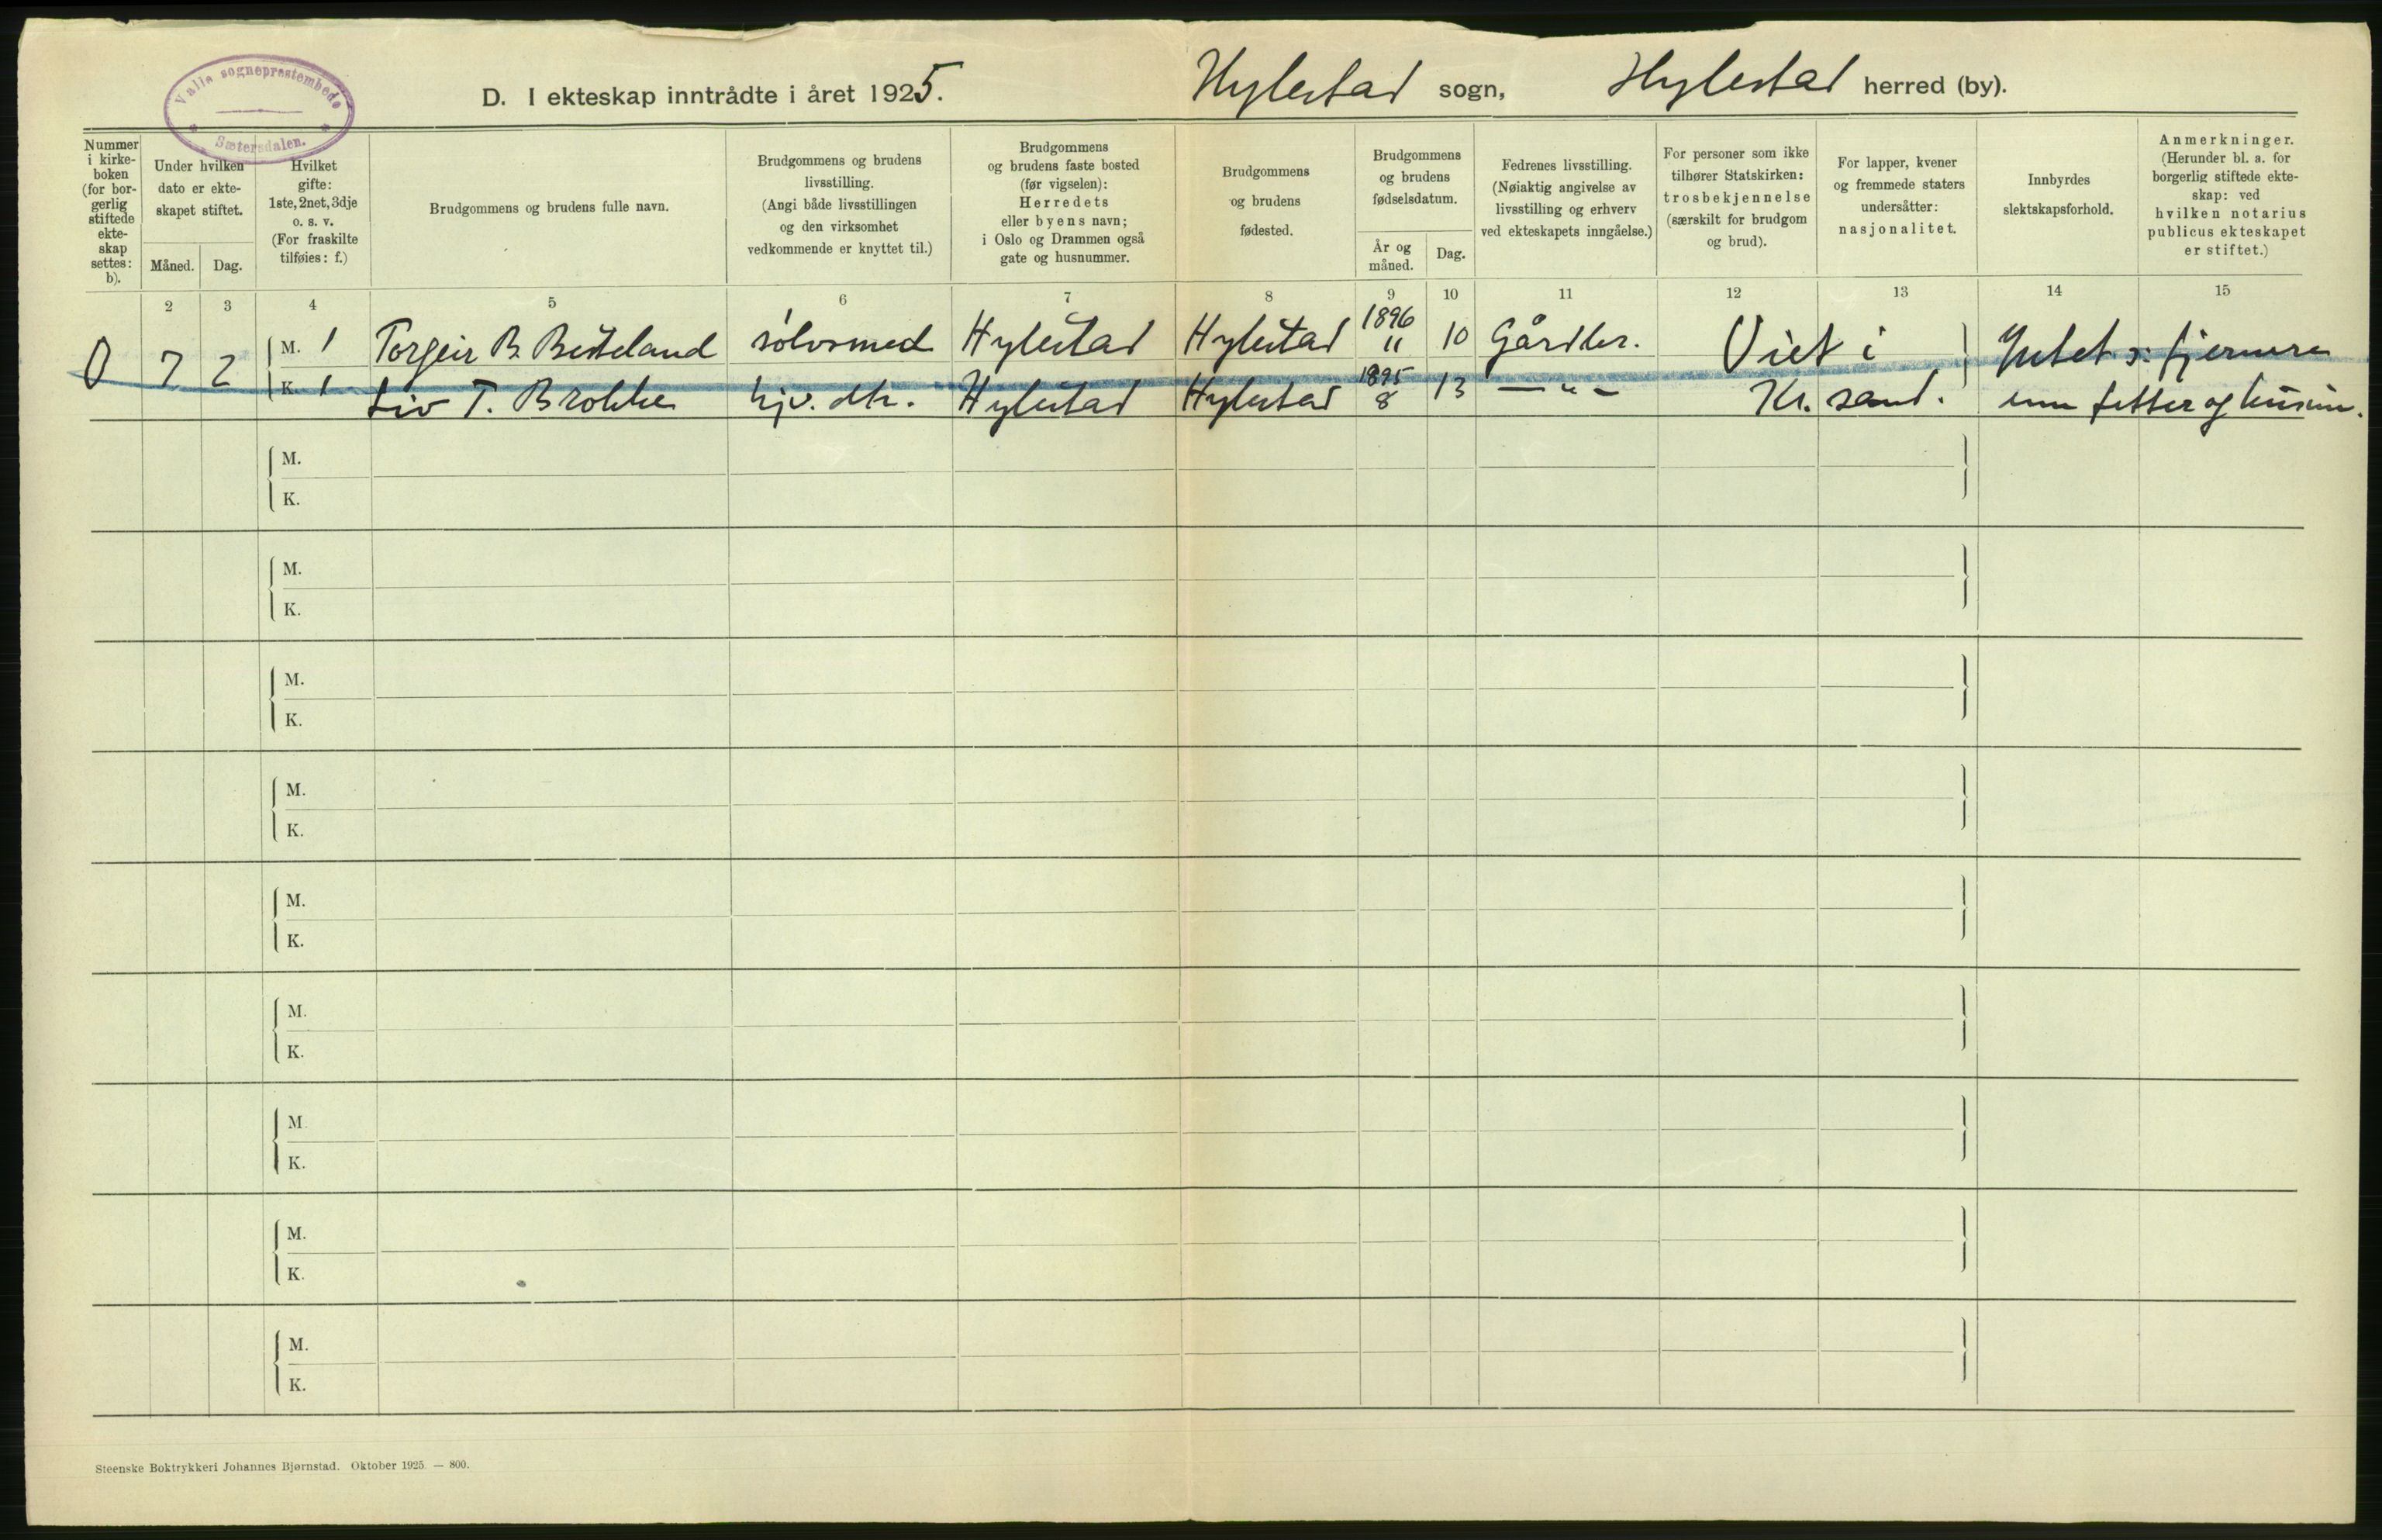 Valle sogneprestembede
Sætersdalen.
D. I ekteskap inntrådte i året 1925.
Hylestad sogn, Hylestad herred (by).
Nummer i kirke-boken (for bor-gerlig stiftede ekte-skap settes: b).
Under hvilken dato er ekte-skapet stiftet.
Måned.
Dag.
Hvilket gifte: 1ste, 2net, 3dje o. s. v. (For fraskilte tilføies: f.)
Brudgommens og brudens fulle navn.
Brudgommens og brudens livsstilling. (Angi både livsstillingen og den virksomhet vedkommende er knyttet til.)
Brudgommens og brudens faste bosted (før vigselen): Herredets eller byens navn; i Oslo og Drammen også gate og husnummer.
Brudgommens og brudens fødested.
Brudgommens og brudens fødselsdatum.
År og måned.
Dag.
Fedrenes livsstilling. (Nøiaktig angivelse av livsstilling og erhverv ved ekteskapets inngåelse.)
For personer som ikke tilhører Statskirken: trosbekjennelse (særskilt for brudgom og brud).
For lapper, kvener og fremmede staters undersåtter: nasjonalitet.
Innbyrdes slektskapsforhold.
Anmerkninger. (Herunder bl. a. for borgerlig stiftede ekte-skap: ved hvilken notarius publicus ekteskapet er stiftet.)
2 3 4 5 6 7 8 9 10 11 12 13 14 15
0 7 2 M. 1 Torgeir B. Besteland sølvsmed Hylestad Hylestad 1896 11 10 Gårdbr. Viet i Intet ɔ: fjernere
K. 1 Liv T. Brokke hjv. dtr. Hylestad Hylestad 1895 8 13 — " — Kr. sand. enn fetter og kusine.
M.
K.
M.
K.
M.
K.
M.
K.
M.
K.
M.
K.
M.
K.
M.
K.
M.
K.
Steenske Boktrykkeri Johannes Bjørnstad. Oktober 1925. — 800.